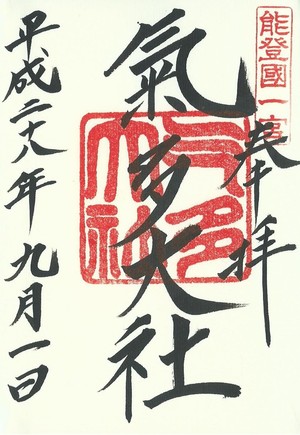 能登國一宮
奉拝
氣多大社
平成二十八年九月一日